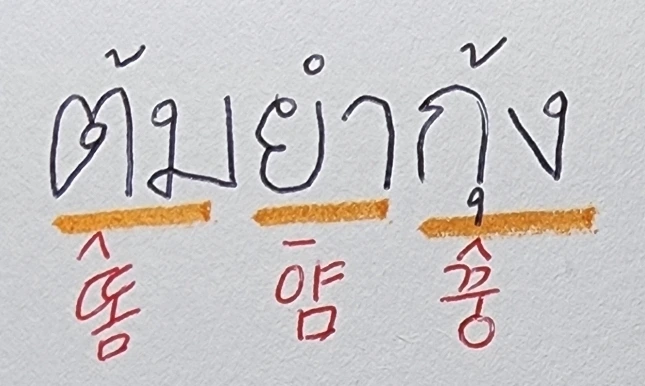 ต้มยำกุ้ง
똠 얌 꿍